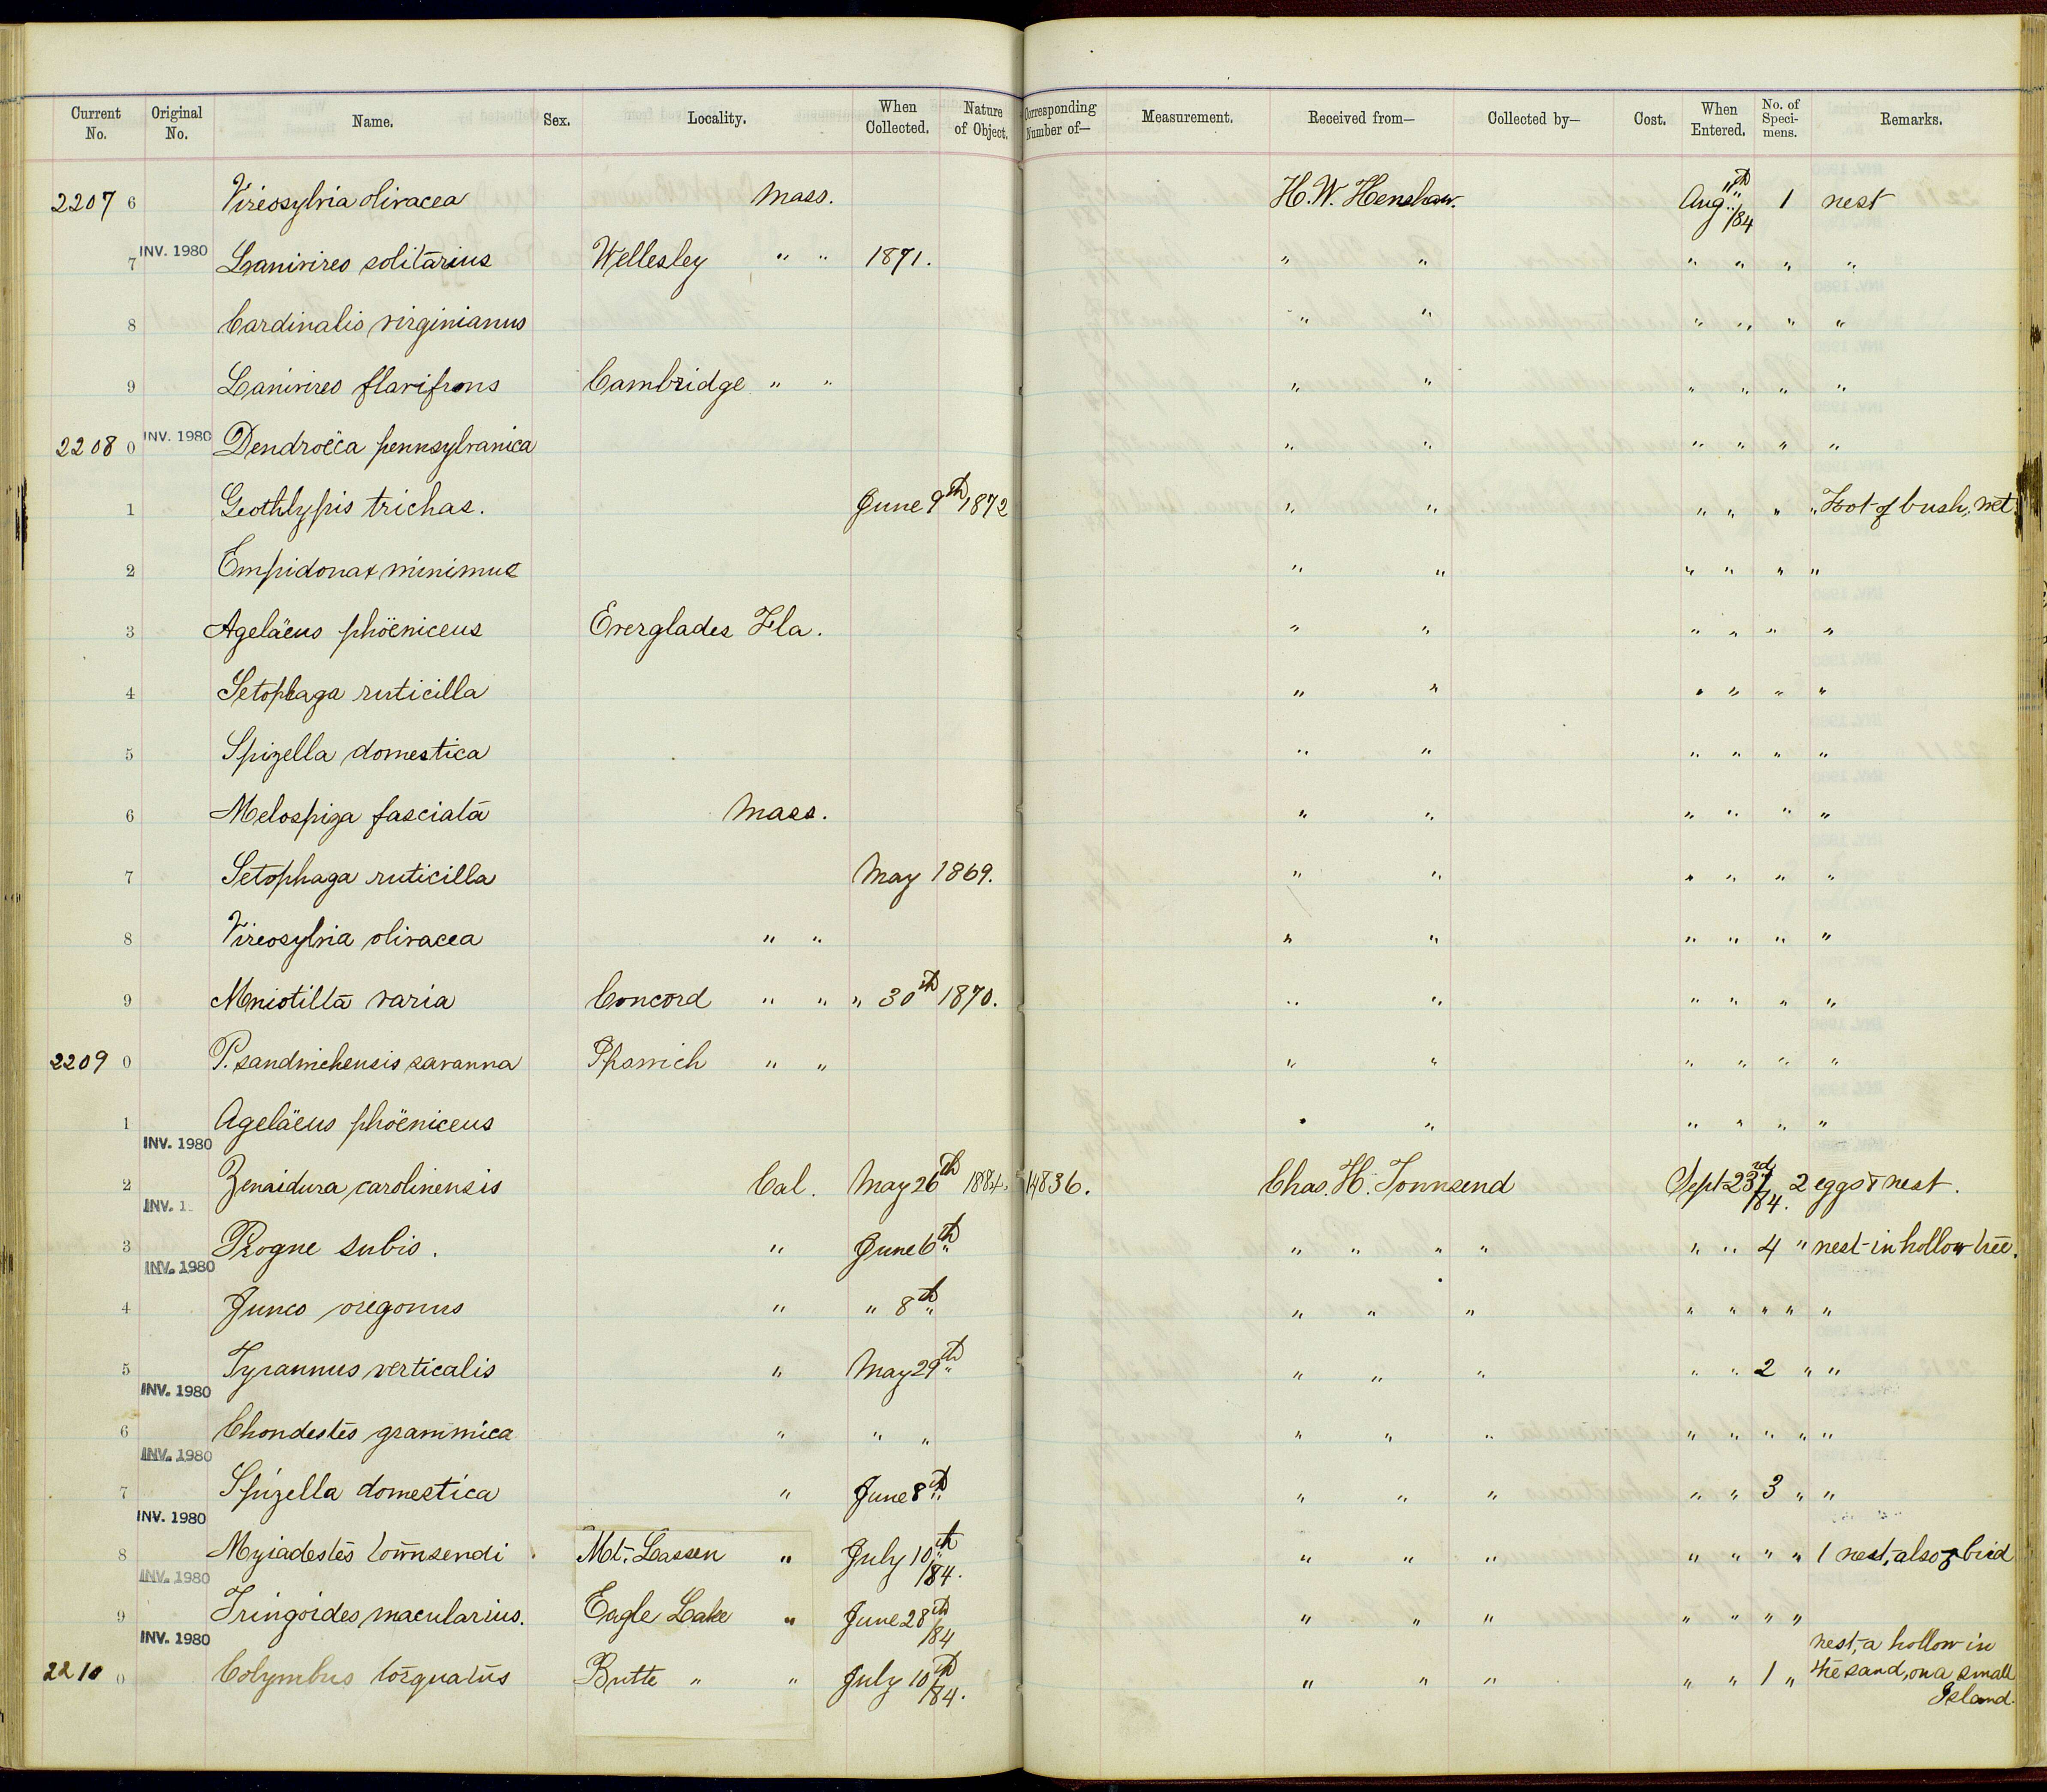 Current No. Original No. Name. Sex. Locality. When Collected. Nature of Object. Corresponding Number of— Measurement. Received from— Collected by— Cost. When Entered. No. of Specimens. Remarks.
2207 6 Vireosylvia olivacea Mass. H. W. Henshaw. Aug. 11th /84 1 nest
7 INV. 1980 Lanivireo solitarius Wellesley " " 1871. " " " " " "
8 Cardinalis virginianus " " " " " "
9 Lanivireo flavifrons Cambridge " " " " " " " "
2208 0 INV. 1980 Dendroëca pennsylvanica " " " " " "
1 Geothlypis trichas. June 9th 1872 " " " " " " Foot of bush, wet
2 Empidonax minimus " " " " " "
3 Ageläeus phöeniceus Everglades Fla. " " " " " "
4 Setophaga ruticilla " " " " " "
5 Spizella domestica " " " " " "
6 Melospiza fasciata Mass. " " " " " "
7 Setophaga ruticilla May 1869. " " " " " "
8 Vireosylvia olivacea " " " " " " " "
9 Mniotilta varia Concord " " " 30th 1870. " " " " " "
2209 0 P. sandwichensis savanna Ipswich " " " " " " " "
1 INV. 1980 Ageläeus phöeniceus " " " " " "
2 INV. 1 Zenaidura carolinensis Cal. May 26th 1884. 14836. Chas. H. Townsend Sept 23rd /84. 2 eggs & nest.
3 INV. 1980 Progne subis. " June 6th " " " " " " " 4 " nest in hollow tree.
4 Junco oregonus " " 8th " " " " " " " " "
5 INV. 1980 Tyrannus verticalis " May 29th " " " " " " 2 " "
6 INV. 1980 Chondestes grammica " " " " " " " " " " "
7 INV. 1980 Spizella domestica " June 8th " " " " " " 3 " "
8 INV. 1980 Myiadestes townsendi Mt. Lassen " July 10th /84. " " " " " " " 1 nest, also bird
9 INV. 1980 Tringoides macularius. Eagle Lake " June 28th /84 " " " " " " "
2210 0 Colymbus torquatus Butte " " July 10th /84. " " " " " 1 " nest, a hollow in
the sand, on a small
Island.